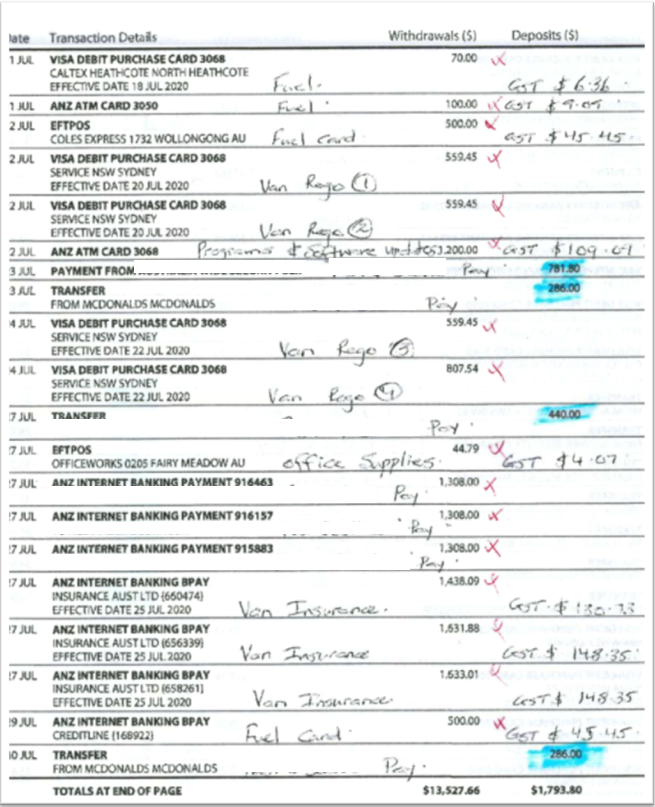 ate Transaction Details Withdrawals ($) Deposits ($)
1 JUL VISA DEBIT PURCHASE CARD 3068 70.00
CALTEX HEATHCOTE NORTH HEATHCOTE
EFFECTIVE DATE 18 JUL 2020 Fuel. GST $6.36
1 JUL ANZ ATM CARD 3050 Fuel. 100.00 GST $9.09
2 JUL EFTPOS 500.00
COLES EXPRESS 1732 WOLLONGONG AU Fuel Card. GST $45.45.
2 JUL VISA DEBIT PURCHASE CARD 3068 559.45
SERVICE NSW SYDNEY
EFFECTIVE DATE 20 JUL 2020 Van Rego ①
2 JUL VISA DEBIT PURCHASE CARD 3068 559.45
SERVICE NSW SYDNEY
EFFECTIVE DATE 20 JUL 2020 Van Rego ②
2 JUL ANZ ATM CARD 3068 Programs & Software updates 1,200.00 GST $109.09
3 JUL PAYMENT FROM Pay 781.80
3 JUL TRANSFER 286.00
FROM MCDONALDS MCDONALDS Pay
4 JUL VISA DEBIT PURCHASE CARD 3068 559.45
SERVICE NSW SYDNEY
EFFECTIVE DATE 22 JUL 2020 Van Rego ③
4 JUL VISA DEBIT PURCHASE CARD 3068 807.54
SERVICE NSW SYDNEY
EFFECTIVE DATE 22 JUL 2020 Van Rego ④
7 JUL TRANSFER 440.00
Pay.
7 JUL EFTPOS 44.79
OFFICEWORKS 0205 FAIRY MEADOW AU office Supplies. GST $4.07
7 JUL ANZ INTERNET BANKING PAYMENT 916463 1,308.00
Pay.
7 JUL ANZ INTERNET BANKING PAYMENT 916157 1,308.00
Pay
7 JUL ANZ INTERNET BANKING PAYMENT 915883 1,308.00
Pay.
7 JUL ANZ INTERNET BANKING BPAY 1,438.09
INSURANCE AUST LTD (660474)
EFFECTIVE DATE 25 JUL 2020 Van Insurance. GST. $130.73
7 JUL ANZ INTERNET BANKING BPAY 1,631.88
INSURANCE AUST LTD (656339)
EFFECTIVE DATE 25 JUL 2020 Van Insurance GST. $148.35
7 JUL ANZ INTERNET BANKING BPAY 1,633.01
INSURANCE AUST LTD (658261)
EFFECTIVE DATE 25 JUL 2020 Van Insurance. GST $148.35
9 JUL ANZ INTERNET BANKING BPAY 500.00
CREDITLINE (168922) Fuel Card. GST $45.45.
0 JUL TRANSFER 286.00
FROM MCDONALDS MCDONALDS Pay.
TOTALS AT END OF PAGE $13,527.66 $1,793.80